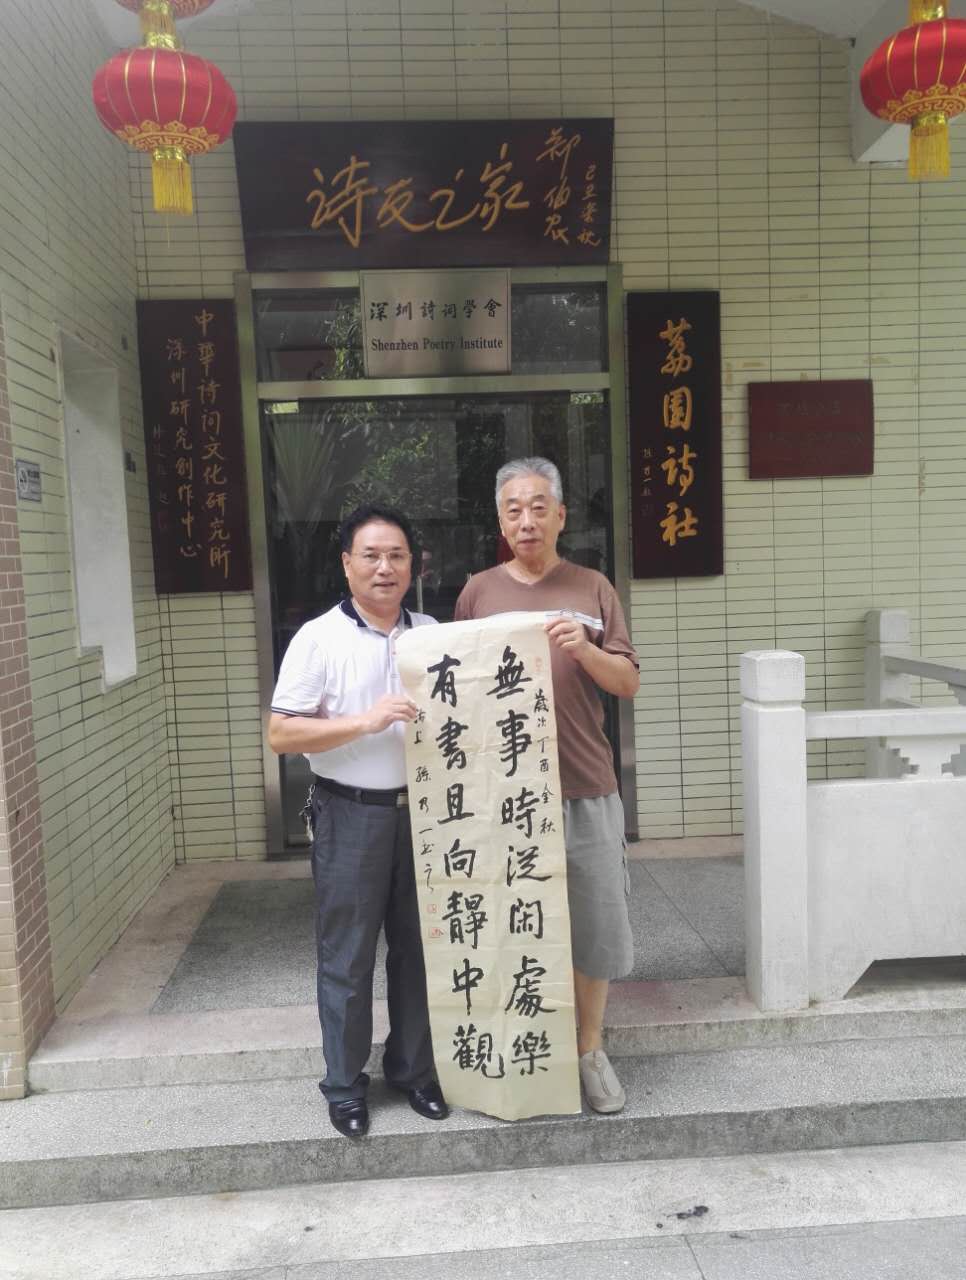 诗友之家
郑伯农
己丑套秋
深圳詩詞學會
Shenzhen Poetry Institute
中華诗词文化研究所
深圳研究創作中心
荔園诗社
無事時從閑處樂
有書且向靜中觀
歲次丁酉金秋